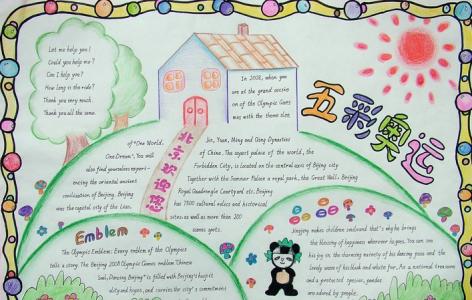 Let me help you!
Could you help me?
Can I help you?
How long is the ride?
Thank you very much.
Thank you all the same.
In 2008, when you
are at the grand session
of the Olympic Games
with the theme slogan
五彩奥运
北京欢迎您
of "One World,
One Dream". You will
also find yourselves experi-
encing the oriental ancient
civilization of Beijing. Beijing
was the capital city of the Liao,
Jin, Yuan, Ming and Qing Dynasties
of China. The largest palace of the world, the
Forbidden City, is located on the central axis of Beijing city.
Together with the Summer Palace a royal park, the Great Wall, Beijing
Royal Quadrangle Courtyard etc. Beijing
has 7300 cultural relics and historical
sites as well as more than 200
scenic spots.
Emblem
The Olympic Emblem: Every emblem of the Olympics
tells a story. The Beijing 2008 Olympic Games emblem "Chinese
Seal, Dancing Beijing" is filled with Beijing's hospit
ality and hopes, and carries the city's commitment
Jingjing makes children smile and that's why he brings
the blessing of happiness wherever he goes. You can see
his joy in the charming naivety of his dancing pose and the
lovely wave of his black and white fur. As a national treasure
and a protected species, pandas
are adored by people